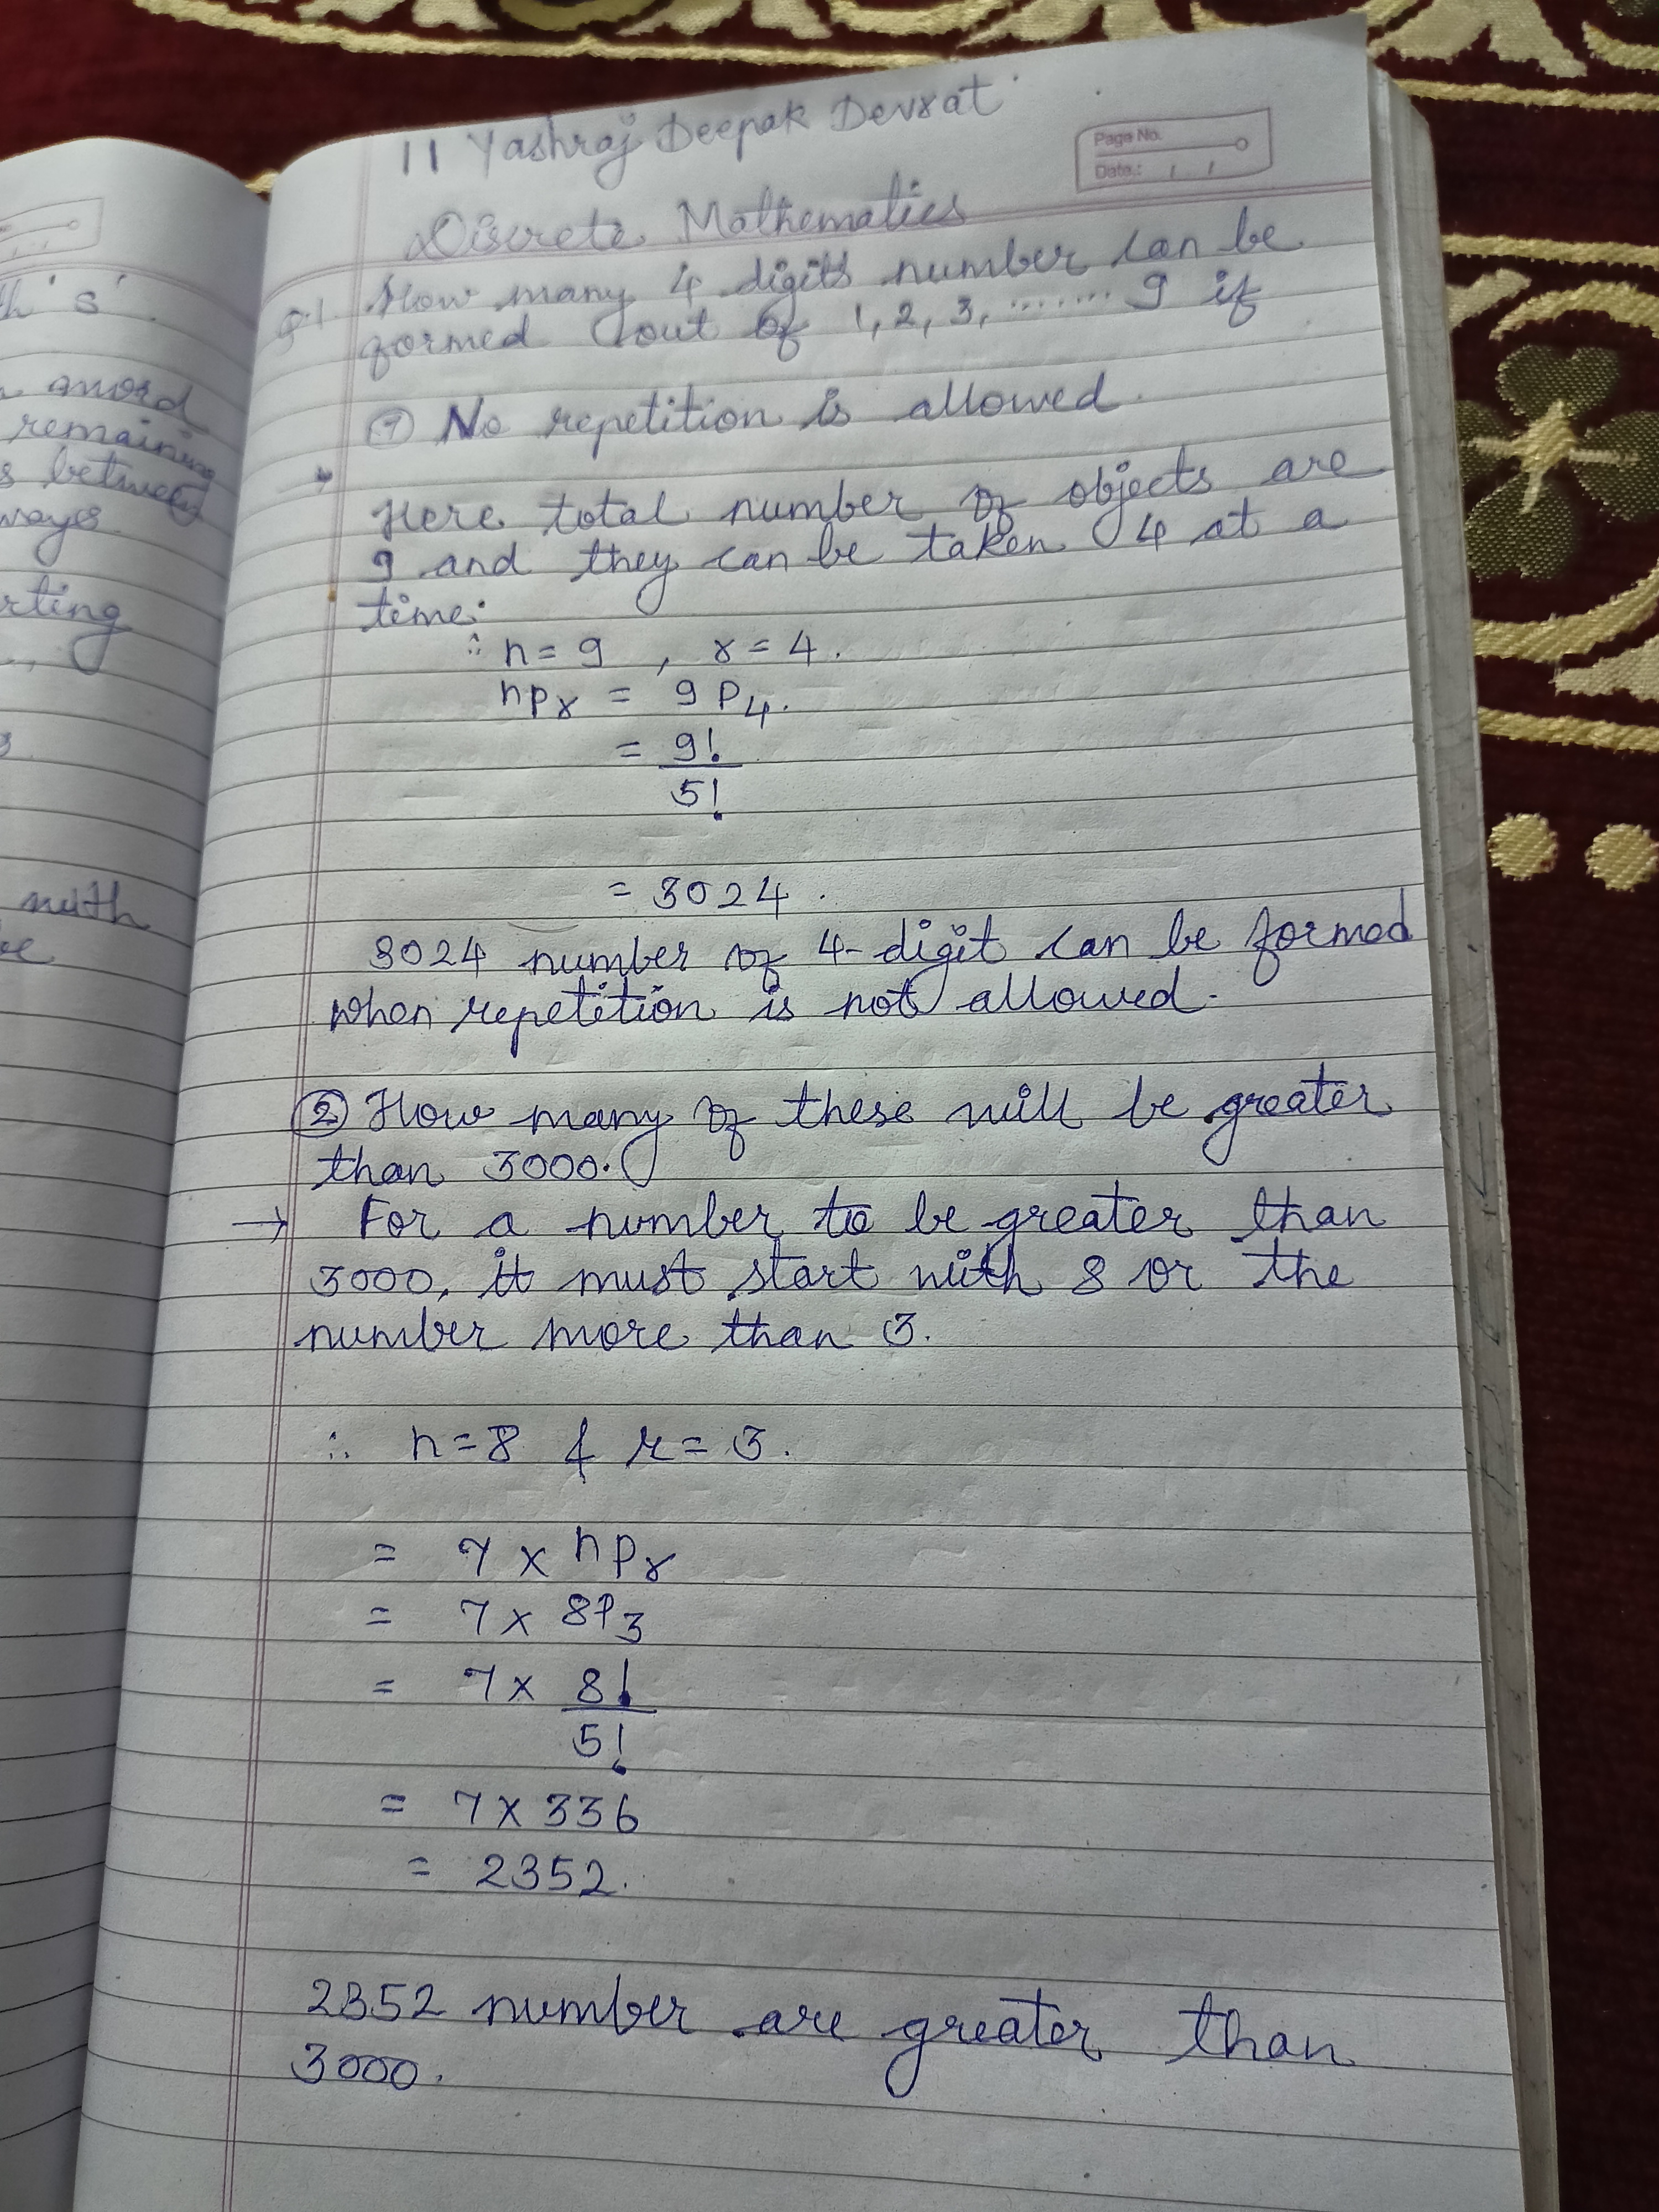 th 's'
word
remaining
s between
ways
rting
with
be
11 Yashraj Deepak Devrat
Page No.
Date.: / /
Discrete Mathematics
Q.1. How many 4 digits number can be
formed out of 1, 2, 3, ....... 9 if
① No repetition is allowed.
→
Here total number of objects are
9 and they can be taken 4 at a
time.
∴ n = 9 , r = 4.
nPr = 9P4.
= 9!
5!
= 3024.
3024 number of 4-digit can be formed
when repetition is not allowed.
② How many of these will be greater
than 3000.
→ For a number to be greater than
3000, it must start with 8 or the
number more than 3.
∴ n = 8 & r = 3.
= 7 x nPr
= 7 x 8P3
= 7 x 8!
5!
= 7 x 336
= 2352.
2352 number are greater than
3000.